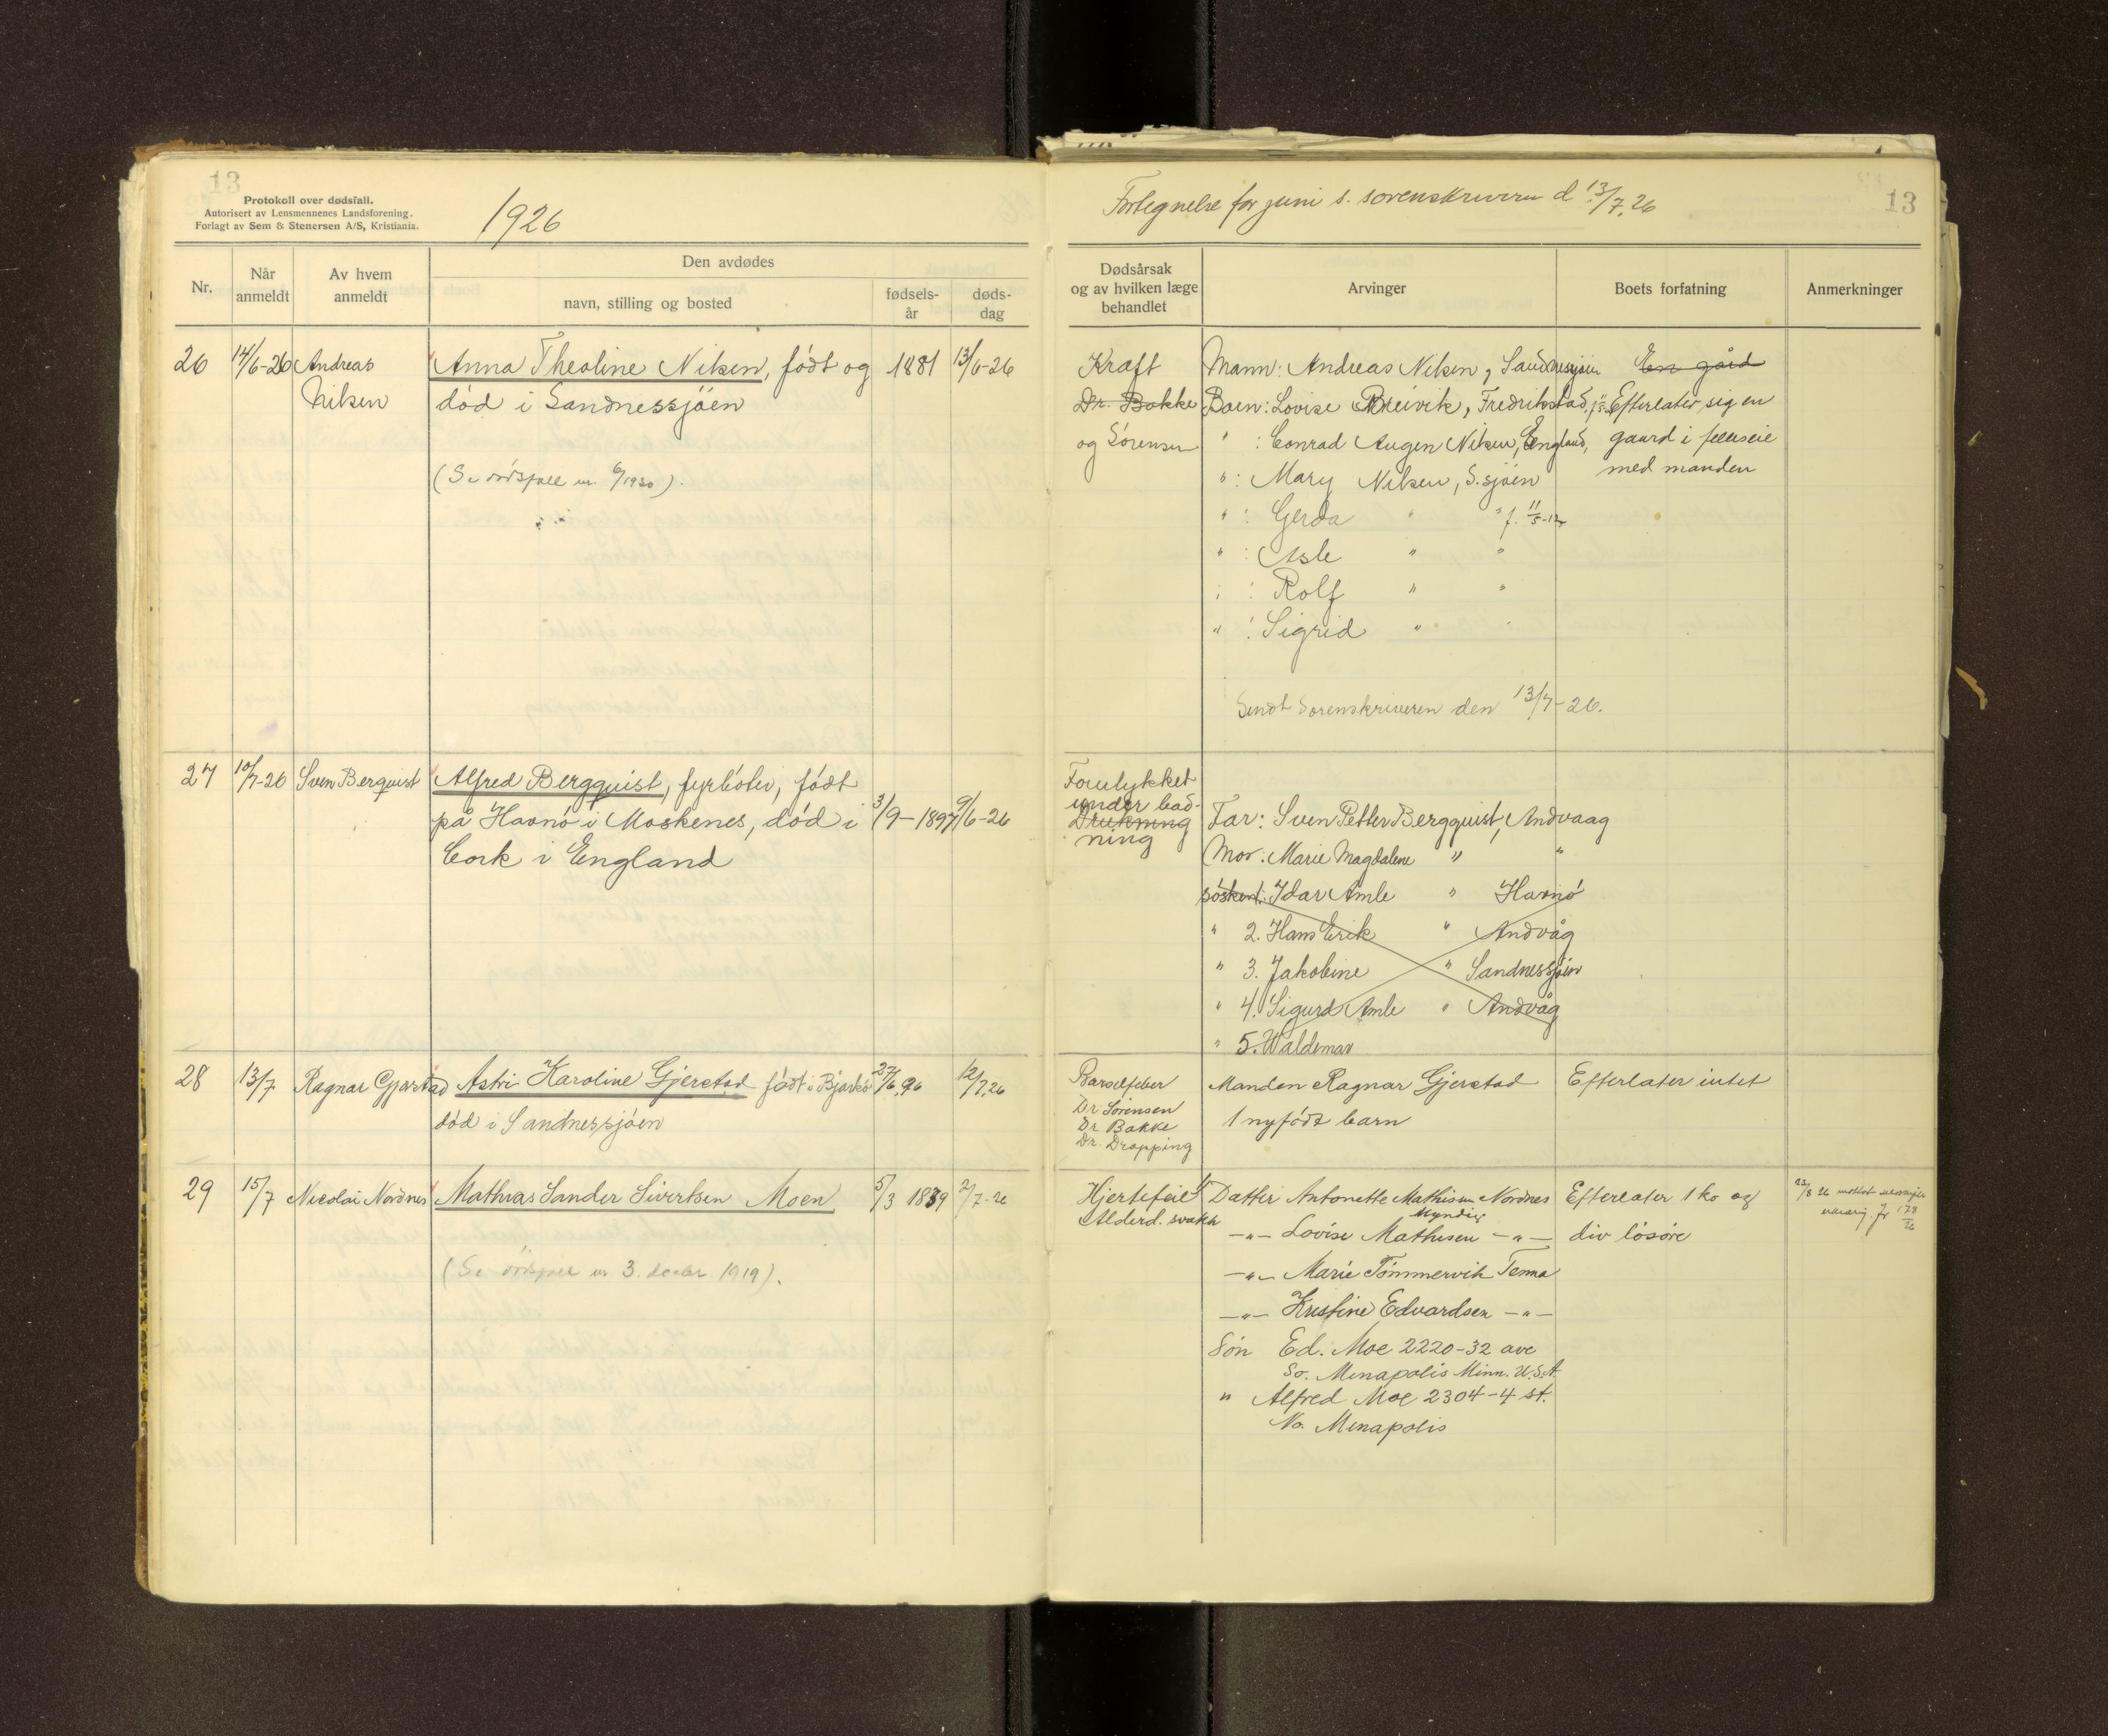 13
Protokoll over dødsfall.
Autorisert av Lensmennenes Landsforening.
Forlagt av Sem & Stenersen A/S, Kristiania.
1926
Nr.
Når anmeldt
Av hvem anmeldt
Den avdødes
navn, stilling og bosted
fødsels-år
døds-dag
26 14/6-26 Andreas Anna Theoline Nilsen, født og 1881 13/6-26
Nilsen død i Sandnessjøen
(Se dødsfall nr. 6/1930).
27 10/7-26 Sven Berquist Alfred Bergquist, fyrbøter, født
på Havnø i Moskenes, død i 3/9-1897 9/6-26
Cork i England
28 13/7 Ragnar Gjerstad Astri Karoline Gjerstad født i Bjarkø 27/6.96 12/7.26
død i Sandnessjøen
29 15/7 Nicolai Nordnes Mathias Sander Sivertsen Moen 5/3 1839 2/7-26
(Se dødsfall nr 3. decbr. 1919).
Fortegnelse for juni s. sorenskriveren d 13/7.26
13
Dødsårsak og av hvilken læge behandlet
Arvinger
Boets forfatning
Anmerkninger
Kraft Mann: Andreas Nilsen, Sandnessjøen En gård
Dr. Bakke Barn: Lovise Breivik, Fredrikstad, Efterlater sig en
og Sørensen " : Conrad Augen Nilsen, England, gaard i felleseie
": Mary Nilsen, S.sjøen med manden
" : Gerda " " f. 11/5-12
" : Asle " "
" : Rolf " "
" : Sigrid "
Sendt Sorenskriveren den 13/7-26.
Forulykket
under bad-
Drukning Far: Sven Petter Bergquist, Andvaag
ning
Mor: Marie Magdalene " "
søsken 1. Idar Amle " Havnø
" 2. Hans Erik " Andvåg
" 3. Jakobine " Sandnessjøen
" 4. Sigurd Amle " Andvåg
" 5. Waldemar
Barselfeber Manden Ragnar Gjerstad Efterlater intet
Dr Sørensen 1 nyfødt barn
Dr Bakke
Dr. Drapping
Hjertefeil Datter Antonette Mathisen Nordnes Efterlater 1 ko og
Alderd. svakh Myndig
-"- Lovise Mathisen -"- div løsøre
-"- Marie Tømmervik Tenna
-"- Kristine Edvardsen -"-
Søn Ed. Moe 2220-32 ave
So. Menapolis Minn. U.S.A.
" Alfred Moe 2304-4 st.
No. Menapolis